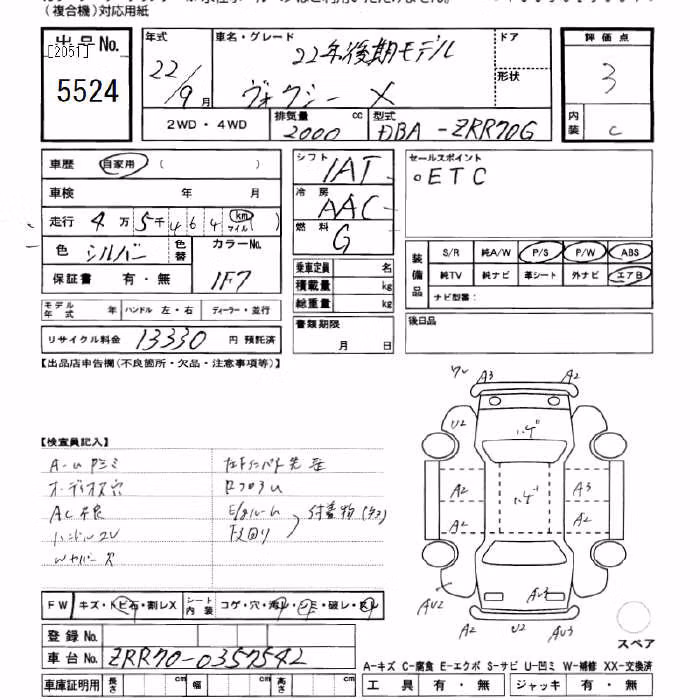 (複合機)対応用紙
出品No.
[2051]
5524
年式 22/9月
車名・グレード 22年後期モデル
ヴォクシー X
ドア
形状
2WD・4WD
排気量 2000 cc
型式 DBA-ZRR70G
評価点
3
内装 C
車歴 自家用 ( )
車検 年 月
走行 4万5千464 km マイル
色 シルバー 色替
カラーNo. 1F7
保証書 有・無
モデル年式 年 ハンドル 左・右 ディーラー・並行
リサイクル料金 13330 円 預託済
シフト IAT
冷房 AAC
燃料 G
乗車定員 名
積載量 kg
総重量 kg
書類期限
月 日
セールスポイント
○ETC
装備品
S/R 純A/W P/S P/W ABS
純TV 純ナビ 革シート 外ナビ エアB
ナビ型番:
後日品
【出品店申告欄(不良箇所・欠品・注意事項等)】
【検査員記入】
オーディオ穴
AC不良
ハンドルスレ
付着物
FW キズ・トビ石・割レX
シート内装 コゲ・穴・汚レ・シミ・破レ・スレ
登録No.
車台No. ZRR70-0357542
車庫証明用 長さ cm 幅 cm 高さ cm
A3 A2
U2
ハゲ
A2 ハゲ A3
A2 A2
AU2 AU3
A2 U2 AU3
スペア
A-キズ C-腐食 E-エクボ S-サビ U-凹ミ W-補修 XX-交換済
工具 有・無 ジャッキ 有・無